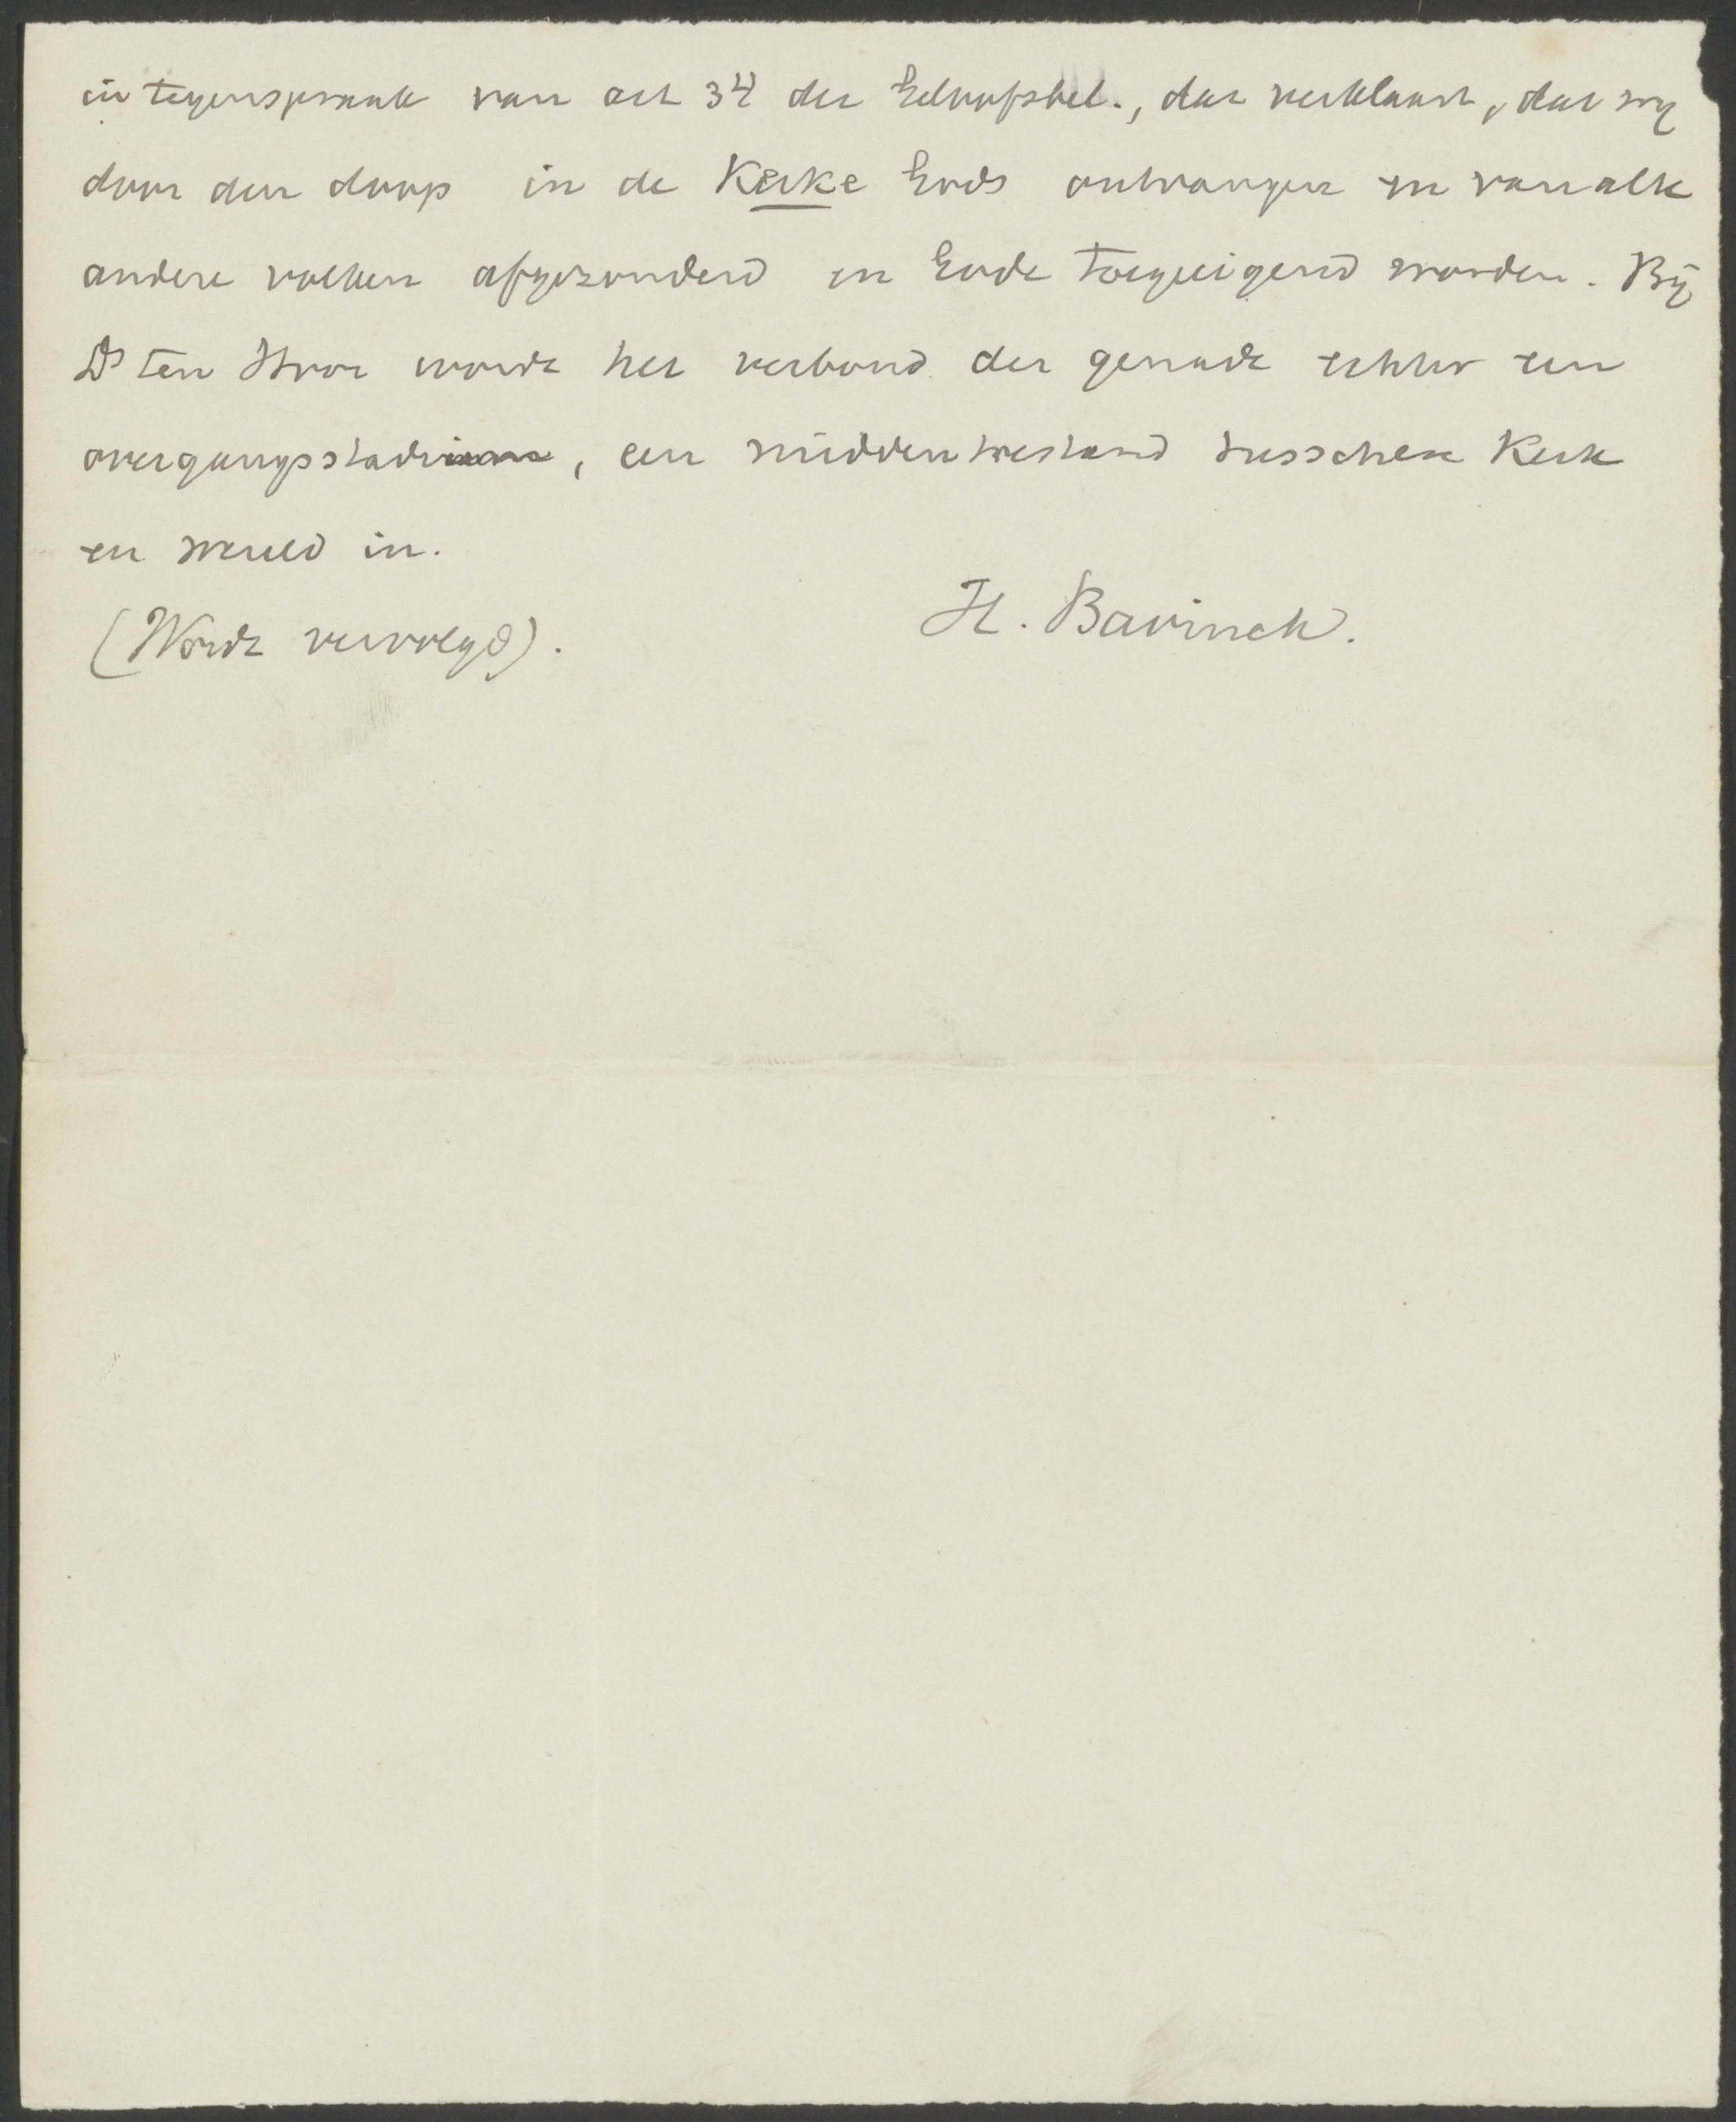 in tegenspraak van art 34 der Geloofsbel., dat verklaart, dat wij
door den doop in de Kerke Gods ontvangen en van alle
andere volken afgezonderd en Gode toegeeigend worden. Bij
Ds ten Hoor wordt het verbond der genade echter een
overgangsstadium, een middentoestand tusschen Kerk
en wereld in.
(Wordt vervolgd). H. Bavinck.